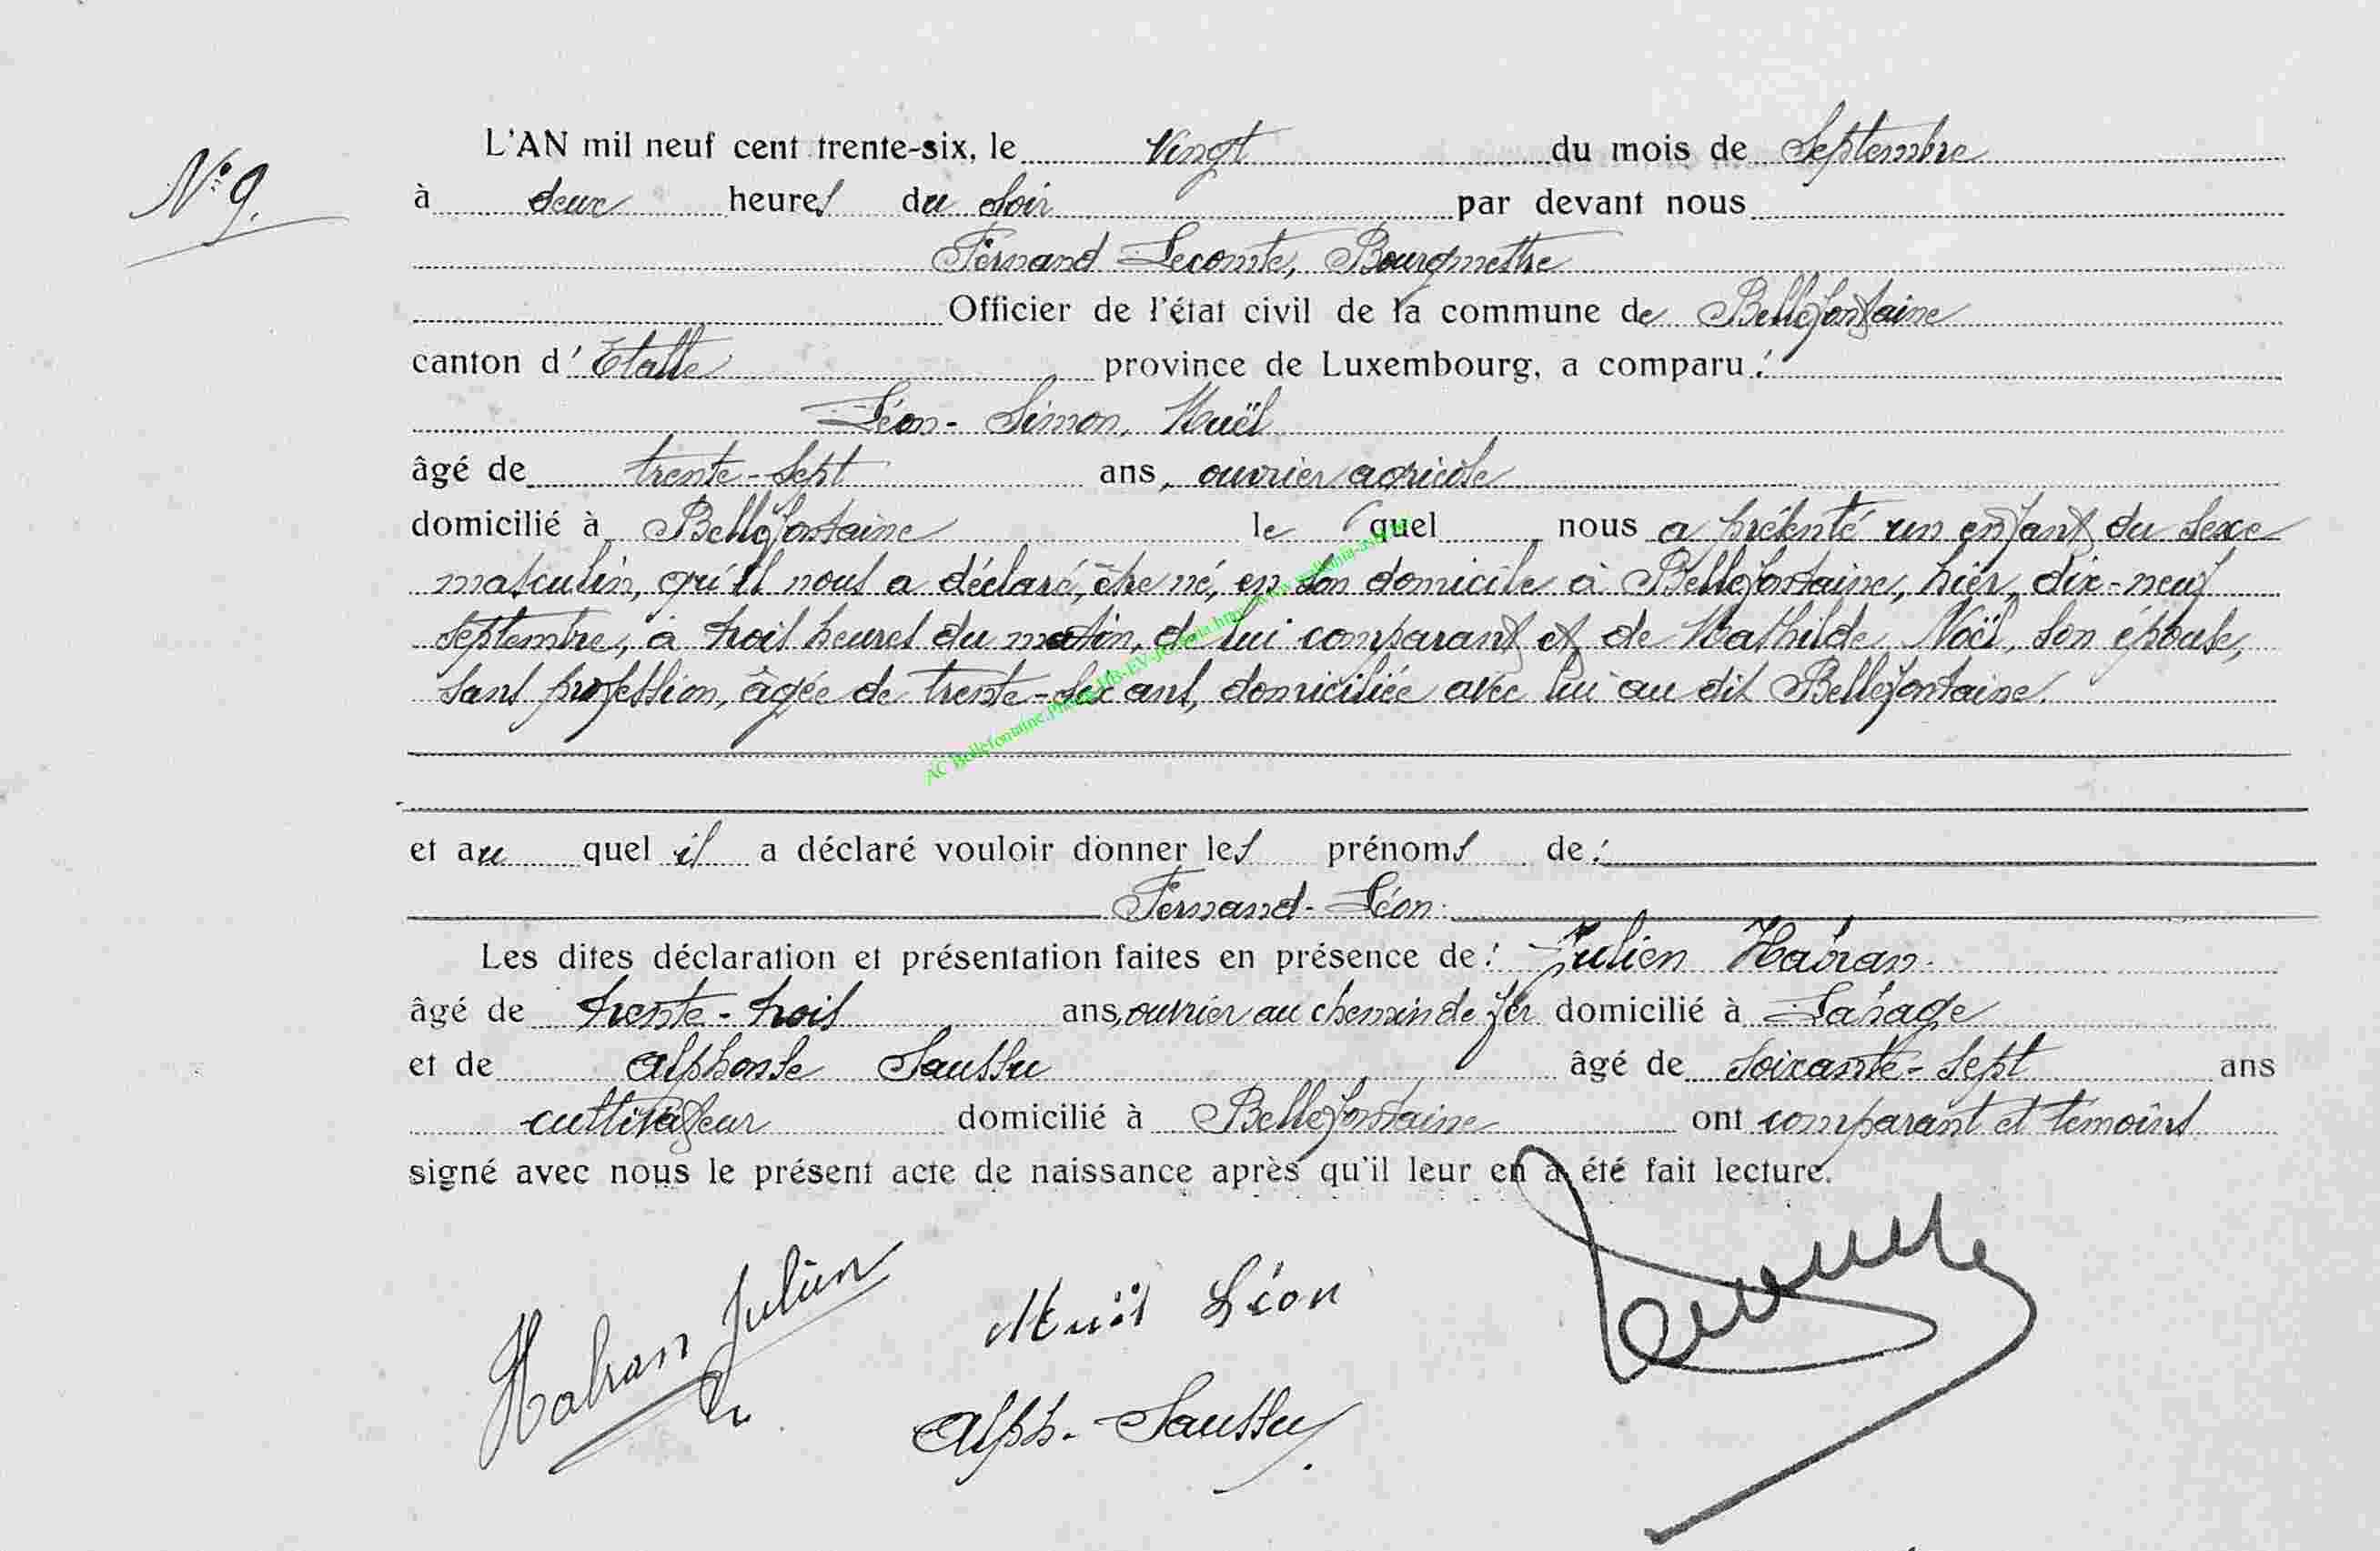 N° 9.
L'AN mil neuf cent trente-six, le Vingt du mois de Septembre
à deux heures du soir par devant nous
Fernand Lecomte, Bourgmestre
Officier de l'état civil de la commune de Bellefontaine
canton d'Etalle province de Luxembourg, a comparu :
Léon-Simon, Muël
âgé de trente-sept ans, ouvrier agricole
domicilié à Bellefontaine le quel nous a présenté un enfant du sexe
masculin, qu'il nous a déclaré, être né, en son domicile à Bellefontaine, hier, dix-neuf
septembre, à trois heures du matin, de lui comparant et de Mathilde Noël, son épouse,
sans profession, âgée de trente-six ans, domiciliée avec lui au dit Bellefontaine.
et au quel il a déclaré vouloir donner les prénoms de :
Fernand-Léon.
Les dites déclaration et présentation faites en présence de : Julien Habran
âgé de trente-trois ans, ouvrier au chemin de fer domicilié à Lahage
et de Alphonse Saussu âgé de soixante-sept ans
cultivateur domicilié à Bellefontaine ont comparant et témoins
signé avec nous le présent acte de naissance après qu'il leur en a été fait lecture.
Habran Julien
Muël Léon
Alph. Saussu
AC Bellefontaine